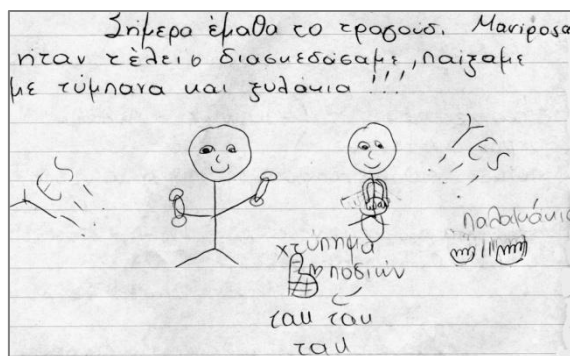 Σήμερα έμαθα το τραγούδι Mariposa
ήταν τέλειο διασκεδάσαμε, παίξαμε
με τύμπανα και ξυλάκια !!!
YES
YES
παλαμάκια
χτύπημα
ποδιών
τακ τακ
τακ